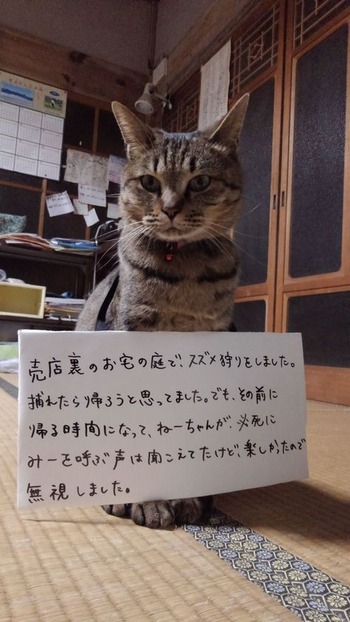 売店裏のお宅の庭で、スズメ狩りをしました。
捕れたら帰ろうと思ってました。でも、その前に
帰る時間になって、ねーちゃんが、必死に
みーを呼ぶ声は聞こえてたけど、楽しかったので
無視しました。